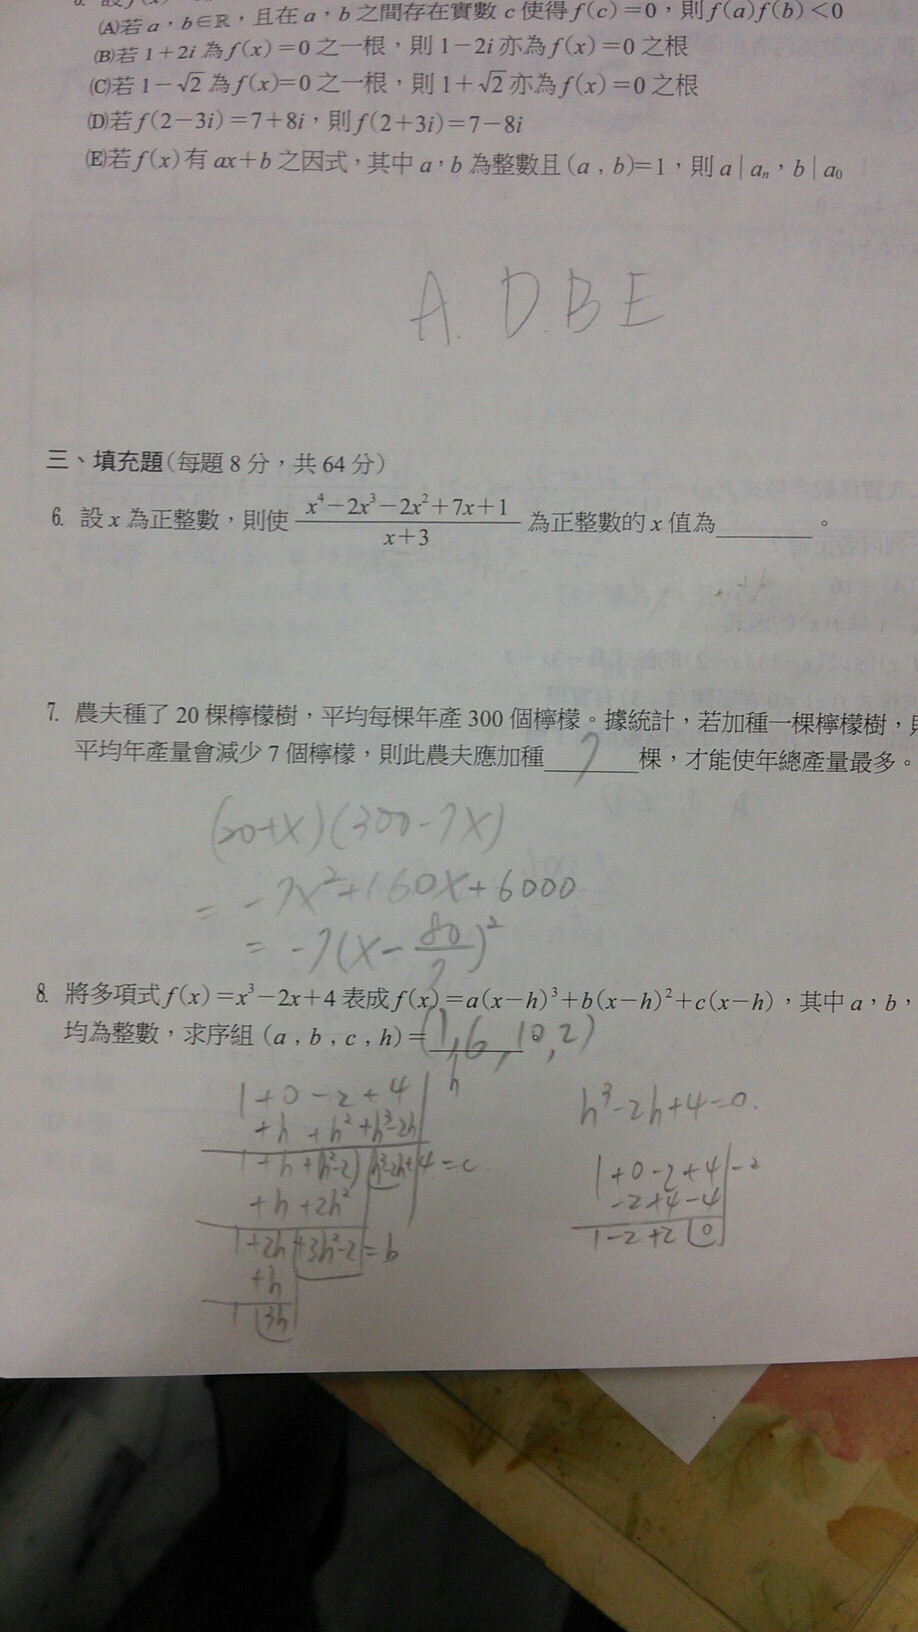 (A)若 a，b∈ℝ，且在 a，b 之間存在實數 c 使得 f(c)=0，則 f(a)f(b)<0
(B)若 1+2i 為 f(x)=0 之一根，則 1-2i 亦為 f(x)=0 之根
(C)若 1-√2 為 f(x)=0 之一根，則 1+√2 亦為 f(x)=0 之根
(D)若 f(2-3i)=7+8i，則 f(2+3i)=7-8i
(E)若 f(x) 有 ax+b 之因式，其中 a，b 為整數且 (a , b)=1，則 a|aₙ，b|a₀
A. D. B E
三、填充題(每題 8 分，共 64 分)
6. 設 x 為正整數，則使 (x⁴-2x³-2x²+7x+1)/(x+3) 為正整數的 x 值為______。
7. 農夫種了 20 棵檸檬樹，平均每棵年產 300 個檸檬。據統計，若加種一棵檸檬樹，則
平均年產量會減少 7 個檸檬，則此農夫應加種______棵，才能使年總產量最多。
(20+x)(300-7x)
= -7x²+160x+6000
= -7(x-80/7)²
8. 將多項式 f(x)=x³-2x+4 表成 f(x)=a(x-h)³+b(x-h)²+c(x-h)，其中 a，b，
均為整數，求序組 (a , b , c , h)=(1,6,10,2)
1+0-2+4 | h
+h +h²+h³-2h
1+h+(h²-2) h³-2h+4=c
+h+2h²
1+2h+3h²-2=b
+h
1 3h
h³-2h+4=0.
1+0-2+4 |-2
-2+4-4
1-2+2 0